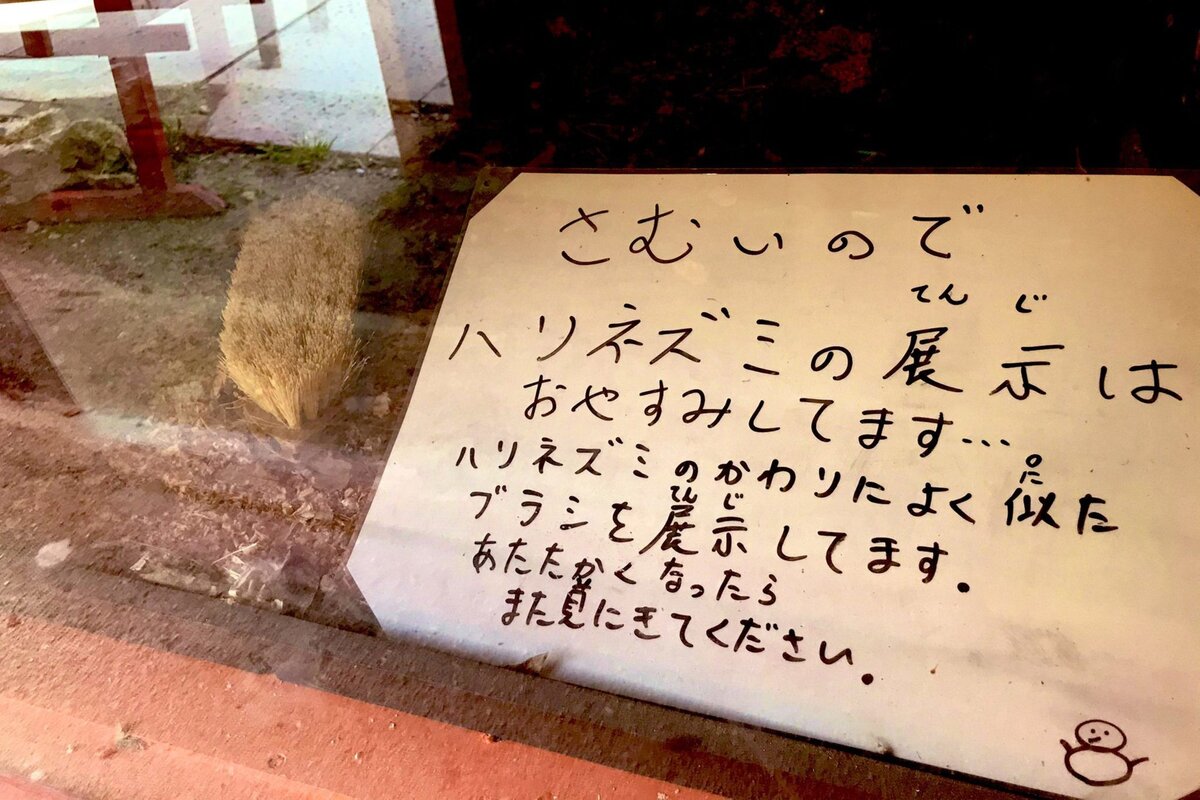 さむいので
ハリネズミの展示は
おやすみしてます…
ハリネズミのかわりによく似た
ブラシを展示してます。
あたたかくなったら
また見にきてください。